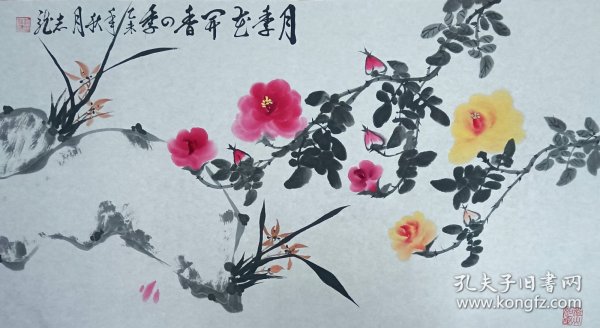 月季花开香四季
乙未年秋月志龙
孔夫子旧书网
www.kongfz.com